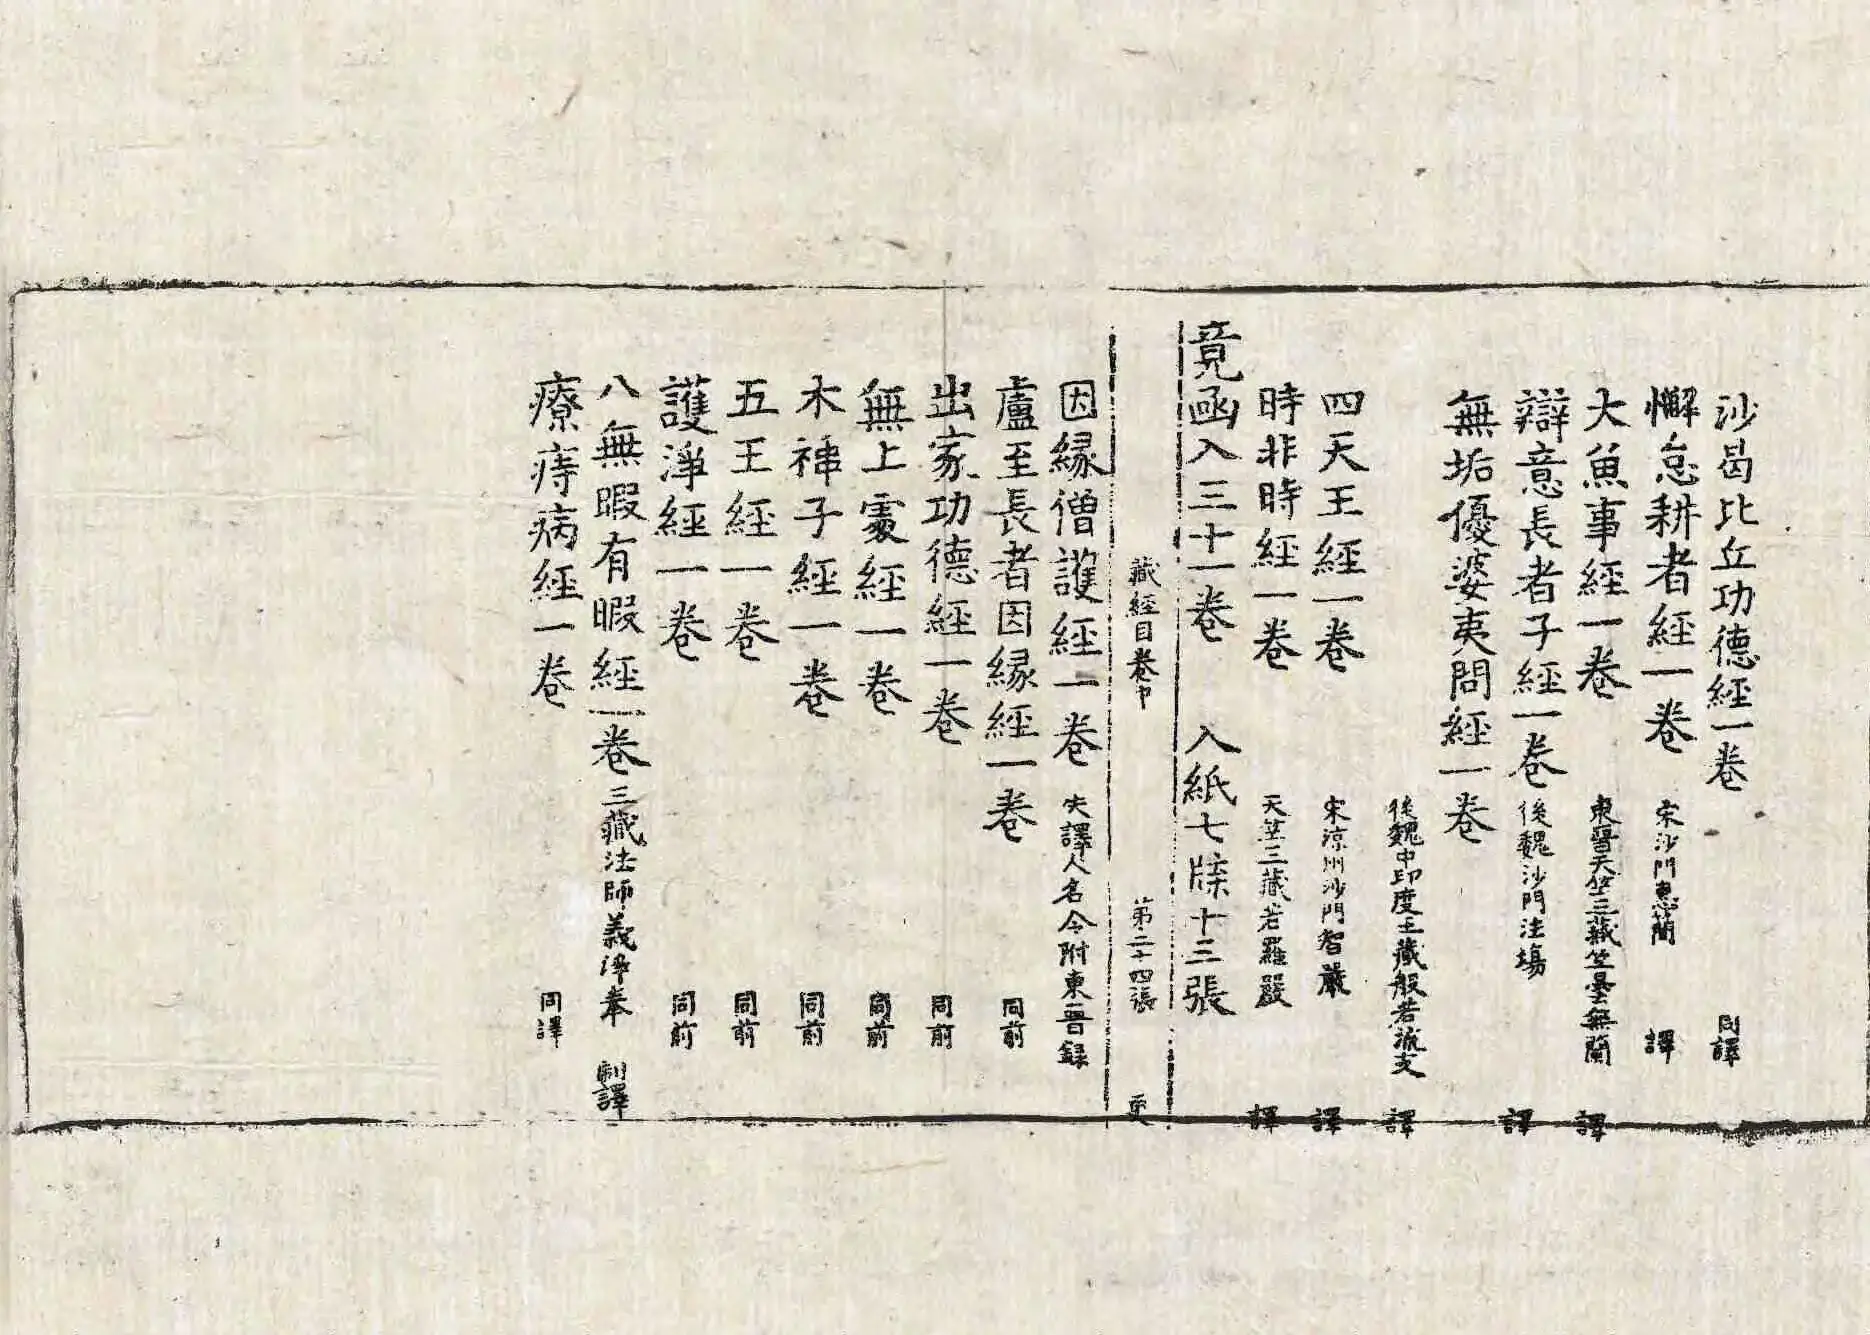 沙曷比丘功德經一卷 同譯
懈怠耕者經一卷 宋沙門惠蕑 譯
大魚事經一卷 東晉天竺三藏竺曇無蘭 譯
辯意長者子經一卷 後魏沙門法場 譯
無垢優婆夷問經一卷
後魏中印度三藏般若流支 譯
四天王經一卷 宋涼州沙門智嚴 譯
時非時經一卷 天竺三藏若羅嚴 譯
竟函入三十一卷 入紙七牒十三張
藏經目卷中 第二十四張 更
因縁僧護經一卷 失譯人名今附東晉録
盧至長者因縁經一卷 同前
出家功德經一卷 同前
無上處經一卷 同前
木槵子經一卷 同前
五王經一卷 同前
護淨經一卷 同前
八無暇有暇經一卷 三藏法師義淨奉 制譯
療痔病經一卷 同譯